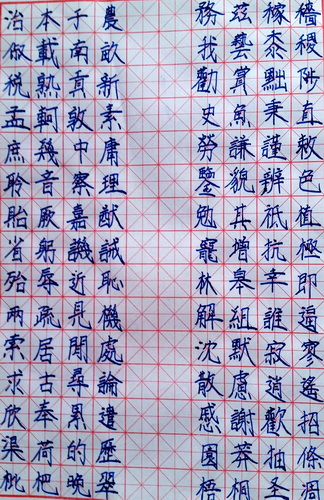 治本于農 務茲稼穡
俶載南畝 我藝黍稷
稅熟貢新 勸賞黜陟
孟軻敦素 史魚秉直
庶幾中庸 勞謙謹敕
聆音察理 鑒貌辨色
貽厥嘉猷 勉其祗植
省躬譏誡 寵增抗極
殆辱近恥 林皋幸即
兩疏見機 解組誰逼
索居閒處 沈默寂寥
求古尋論 散慮逍遙
欣奉累遣 感謝歡招
渠荷的歷 園莽抽條
枇杷晚翠 梧桐圣凋